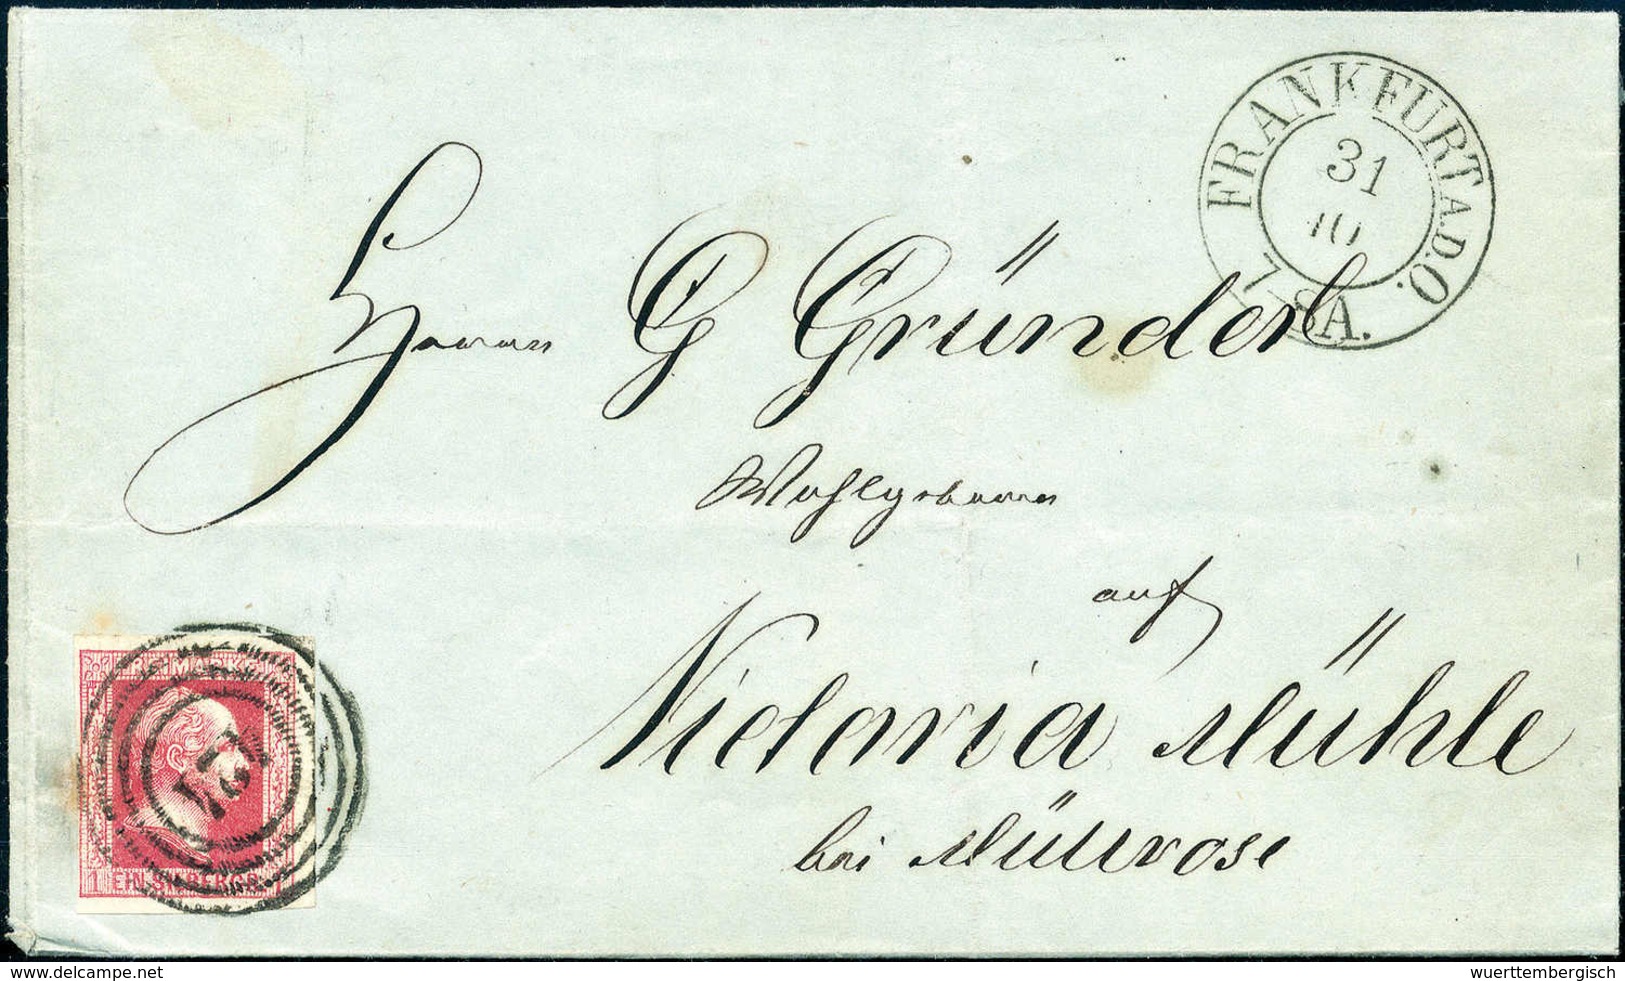 FRANKFURT A.D.O.
31
10
7-8A.
Herrn G Gründer
Wohlgeboren
auf
Victoria Mühle
bei Müllrose
FREIMARKE
1 EIN SILBERGR. 1
delcampe.net
wuerttembergisch